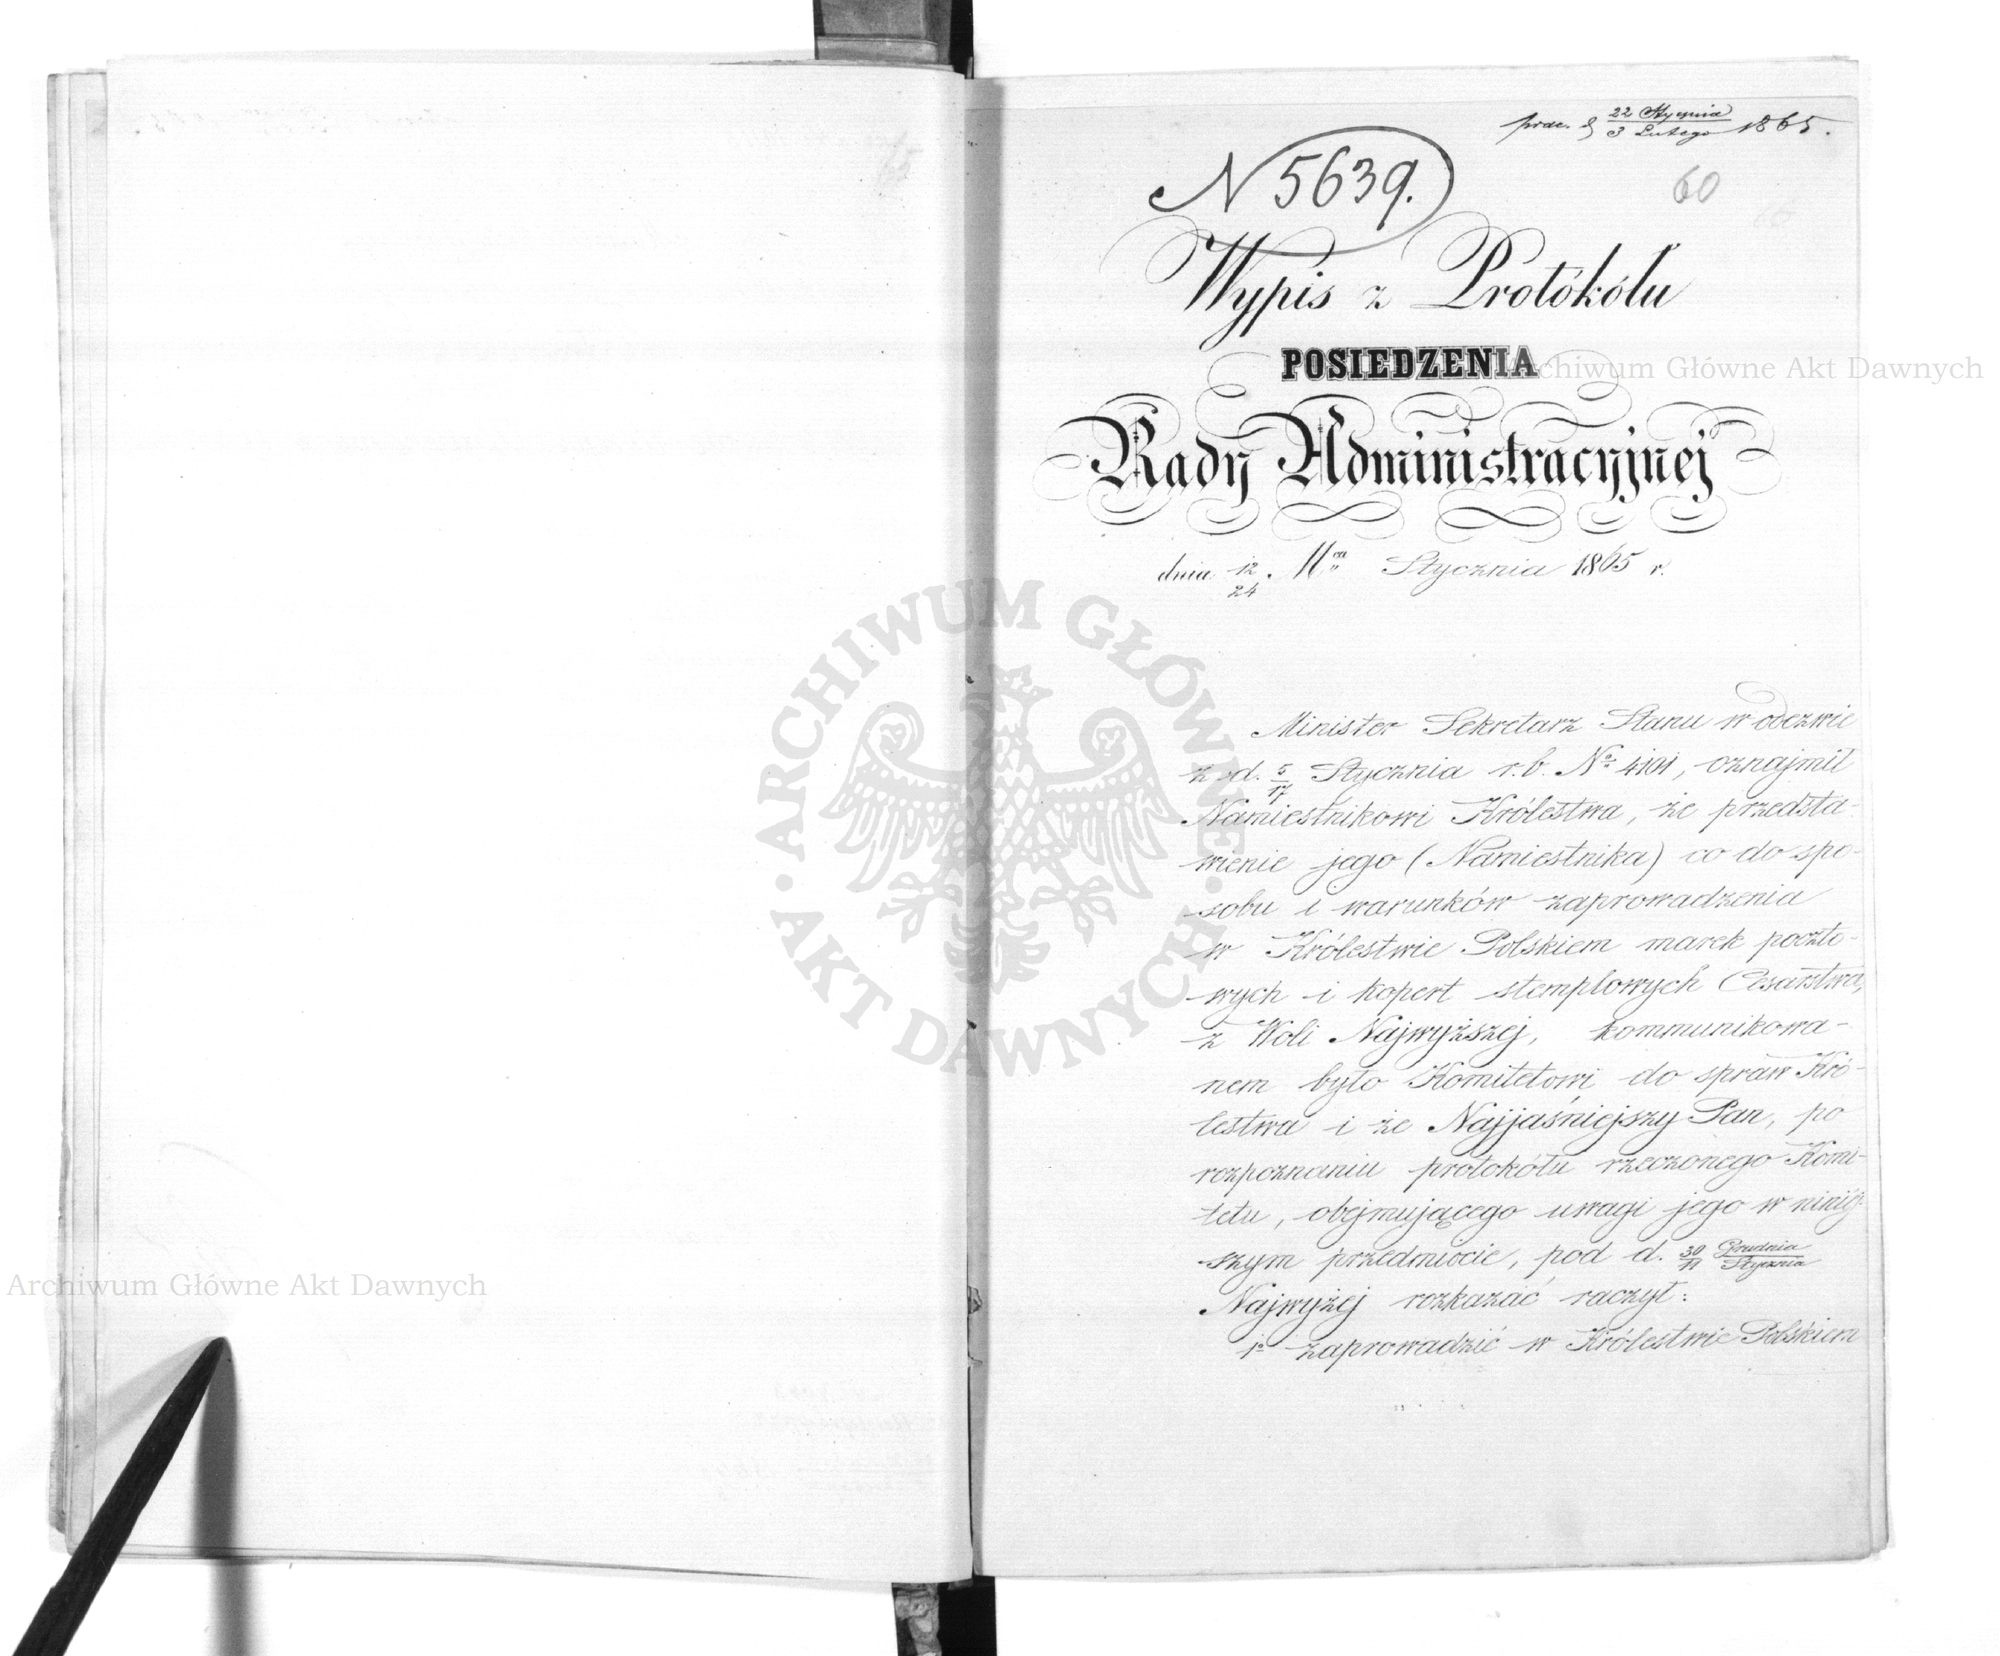 prac. d 22 Stycznia / 3 Lutego 1865.
N 5639.
60
Wypis z Protókółu
POSIEDZENIA
Rady Administracyjnej
dnia 12/24. Mca Stycznia 1865 r.
Minister Sekretarz Stanu w odezwie
z d. 5/17 Stycznia r.b. No 4101, oznajmił
Namiestnikowi Królestwa, że przedsta-
wienie jego (Namiestnika) co do spo-
sobu i warunków zaprowadzenia
w Królestwie Polskiem marek poczto-
wych i kopert stemplowych Cesarstwa,
z Woli Najwyższej, kommunikowa-
nem było Komitetowi do spraw Kró-
lestwa i że Najjaśniejszy Pan, po
rozpoznaniu protokółu rzeczonego Komi-
tetu, obejmującego uwagi jego w niniej-
szym przedmiocie, pod d. 30/11 Grudnia/Stycznia
Najwyżej rozkazać raczył:
1o zaprowadzić w Królestwie Polskiem
Archiwum Główne Akt Dawnych
Archiwum Główne Akt Dawnych
ARCHIWUM GŁÓWNE · AKT DAWNYCH ·